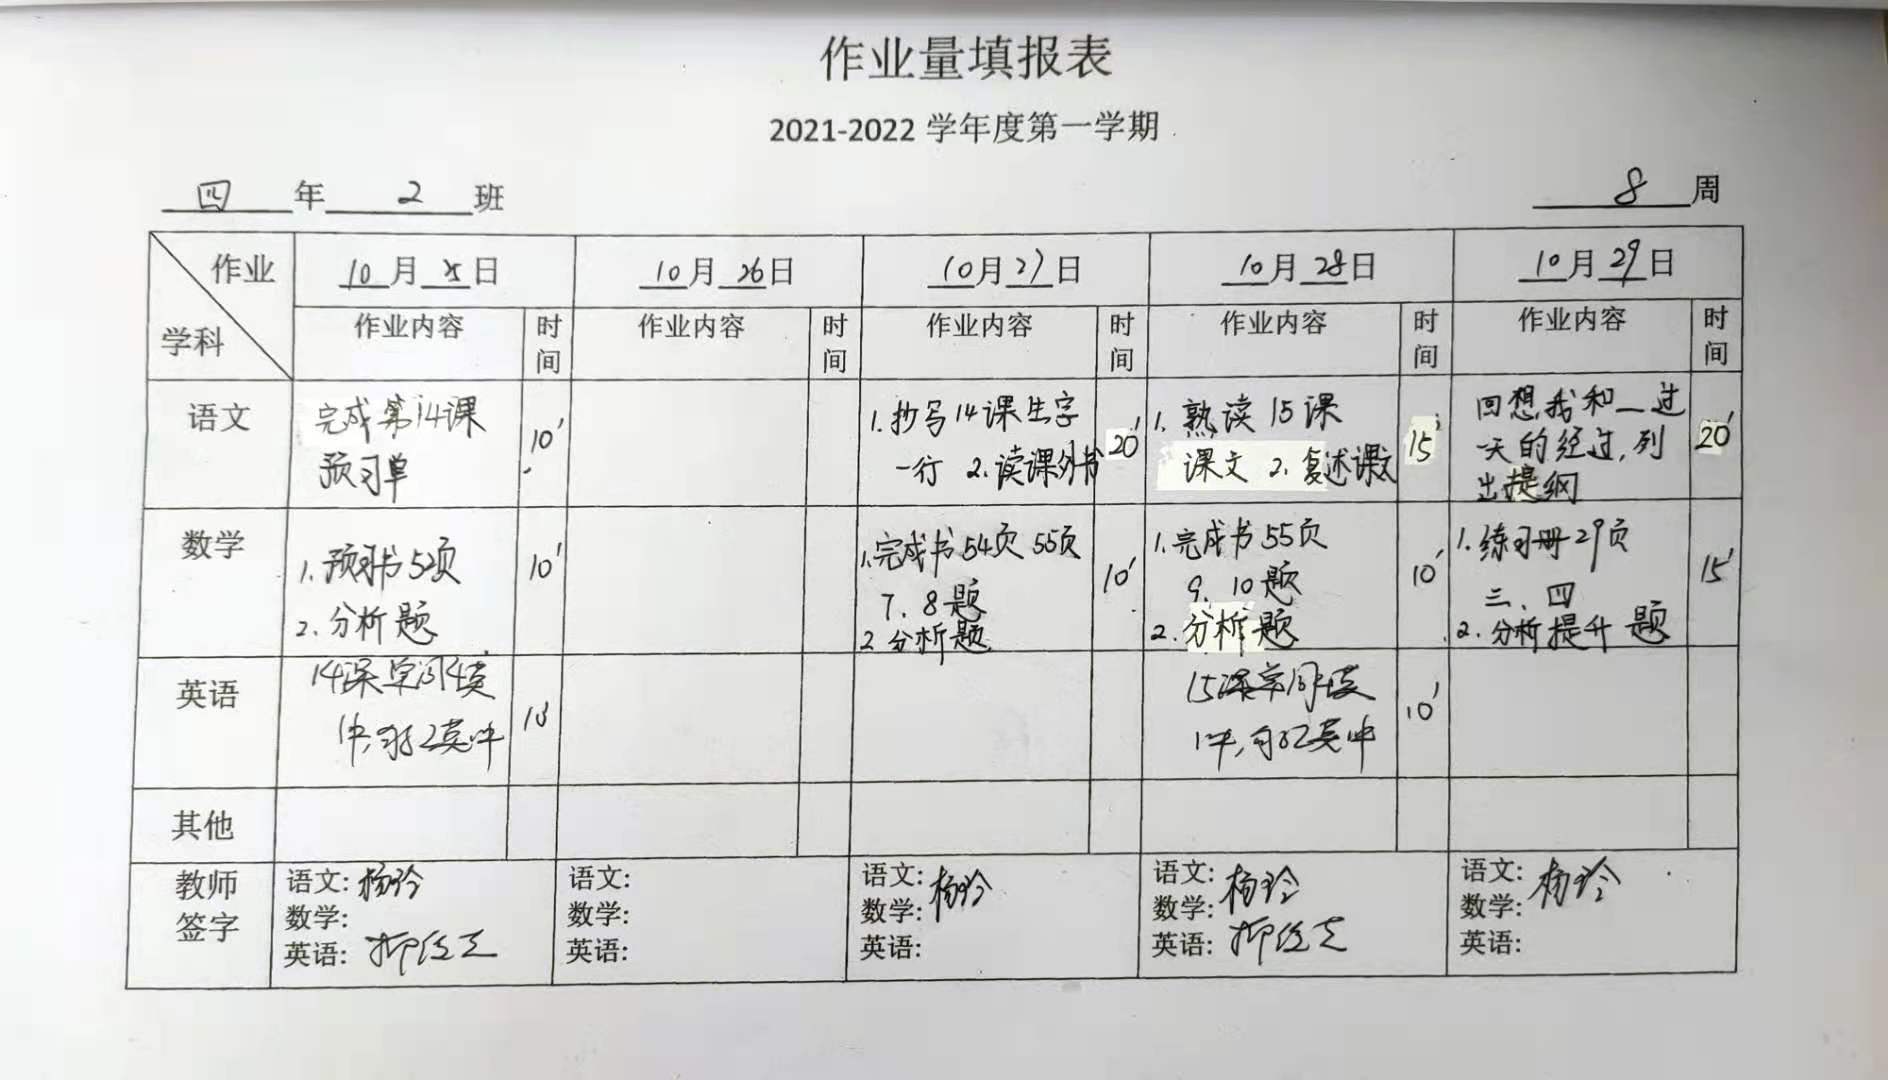 作业量填报表
2021-2022 学年度第一学期
四 年 2 班
8 周
作业
学科
10月25日
10月26日
10月27日
10月28日
10月29日
作业内容 时间
作业内容 时间
作业内容 时间
作业内容 时间
作业内容 时间
语文
完成第14课
预习单
10′
1.抄写14课生字
一行 2.读课外书
20′
1.熟读15课
课文 2.复述课文
15′
回想我和__过
一天的经过,列
出提纲
20′
数学
1.预习书52页
2.分析题
10′
1.完成书54页 55页
7、8题
2.分析题
10′
1.完成书55页
9、10题
2.分析题
10′
1.练习册29页
三、四
2.分析提升题
15′
英语
14课
10′
15课
10′
其他
教师
签字
语文: 杨玲
数学:
英语:
语文:
数学:
英语:
语文: 杨玲
数学:
英语:
语文: 杨玲
数学:
英语:
语文: 杨玲
数学:
英语: